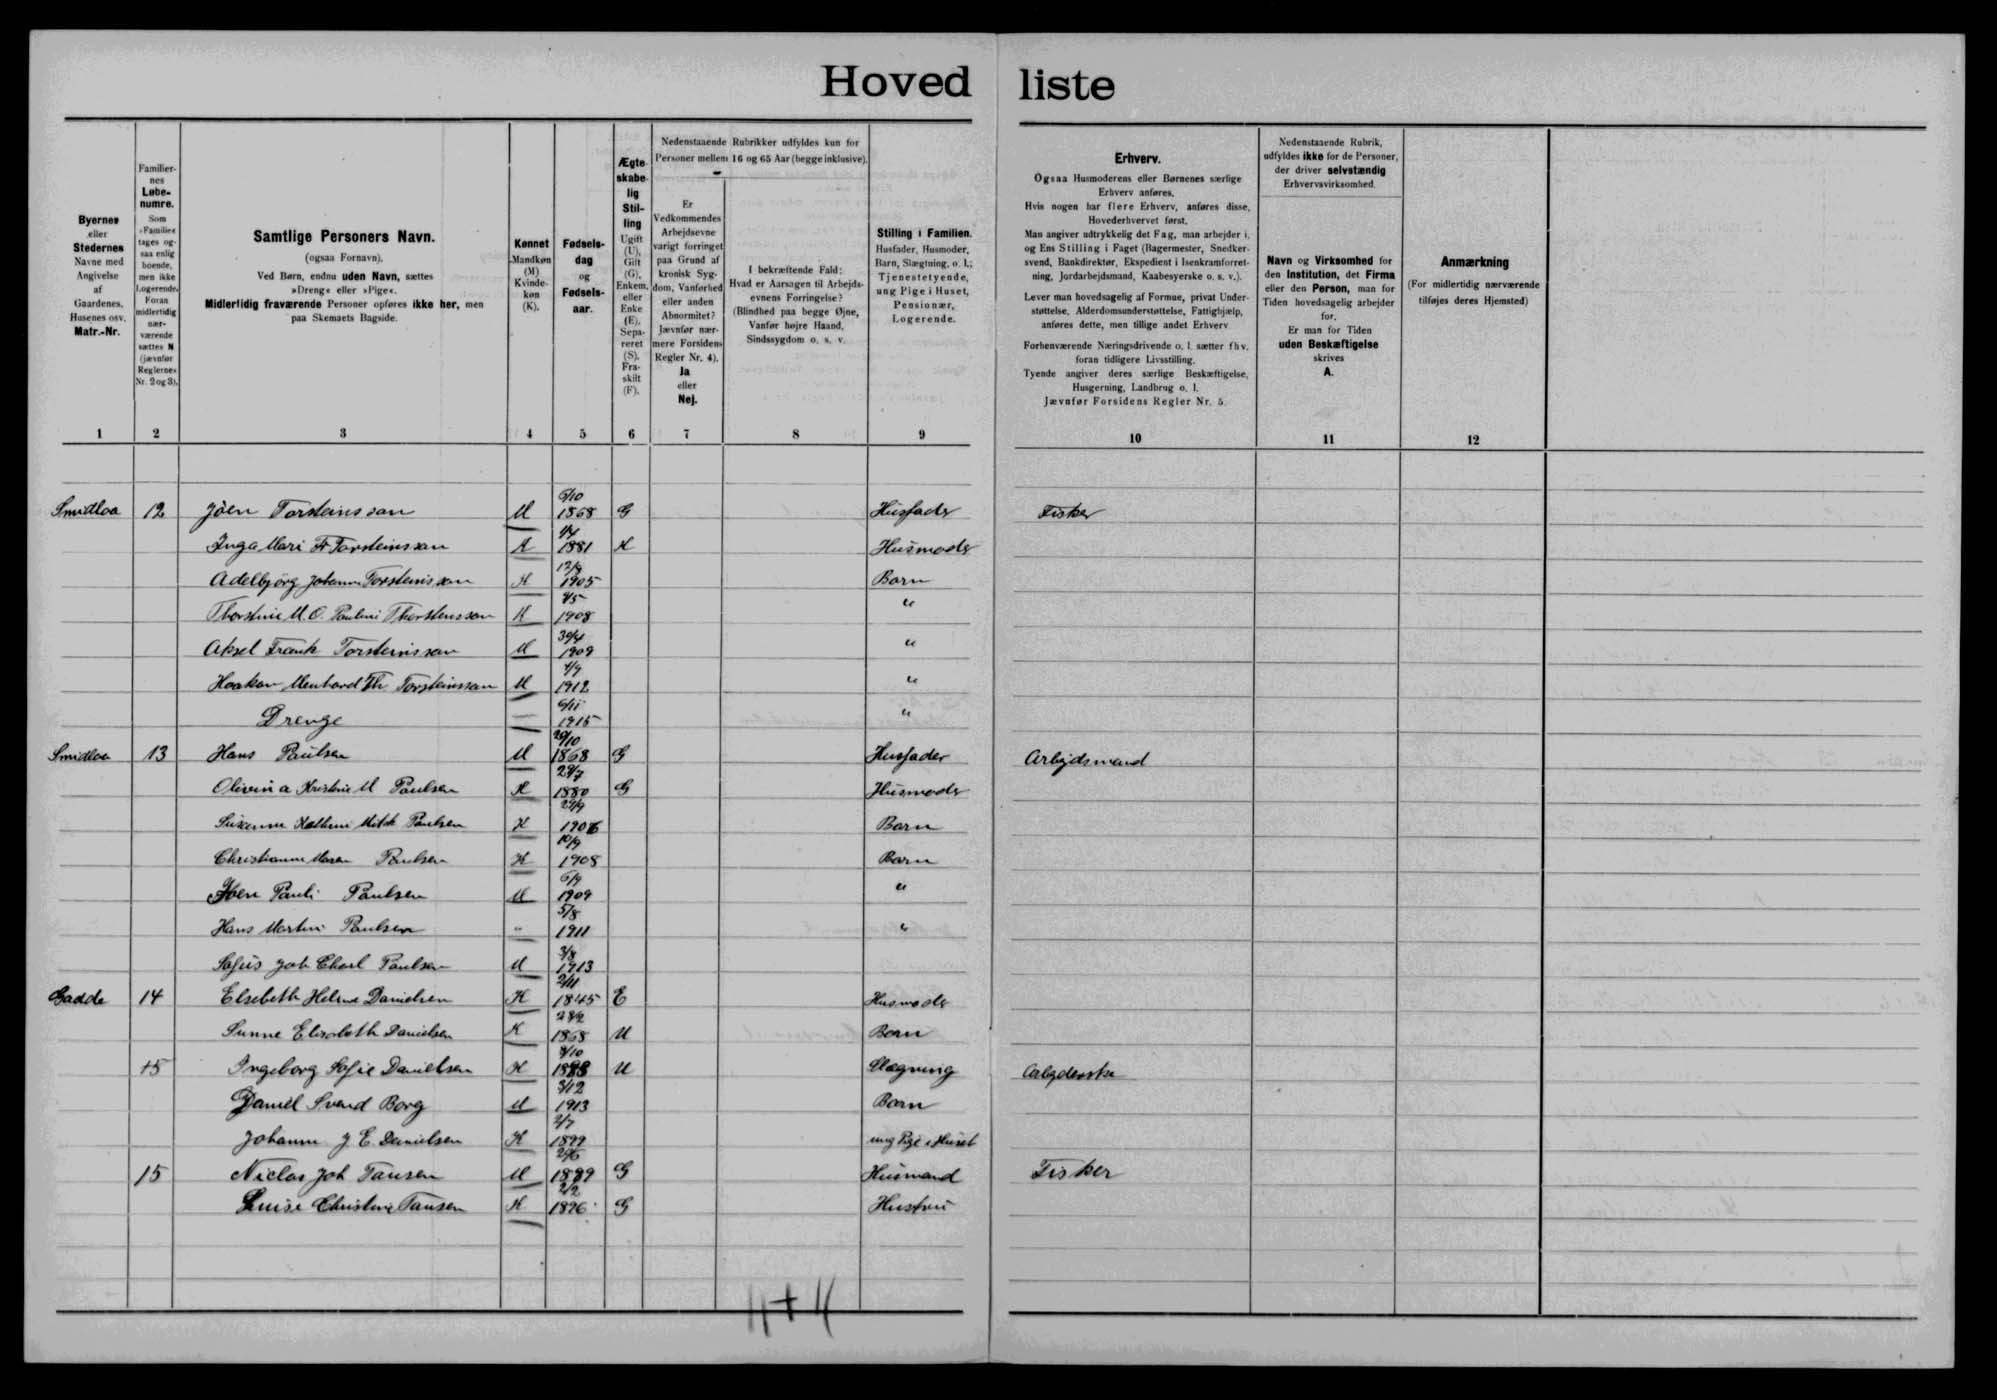 Hovedliste
Byernes eller Stedernes Navne med Angivelse af Gaardenes, Husenes osv. Matr.-Nr.
Familiernes Løbenumre. Som »Familie« tages ogsaa enlig boende, men ikke Logerende. Foran midlertidig nærværende sættes N (jævnfør Reglernes Nr. 2 og 3).
Samtlige Personers Navn.
(ogsaa Fornavn).
Ved Børn, endnu uden Navn, sættes
»Dreng« eller »Pige«.
Midlertidig fraværende Personer opføres ikke her, men
paa Skemaets Bagside.
Kønnet Mandkøn (M) Kvindekøn (K).
Fødselsdag og Fødselsaar.
Ægteskabelig Stilling Ugift (U), Gift (G), Enkem. eller Enke (E), Separeret (S), Fraskilt (F).
Nedenstaaende Rubrikker udfyldes kun for
Personer mellem 16 og 65 Aar (begge inklusive).
Er Vedkommendes Arbejdsevne varigt forringet paa Grund af kronisk Sygdom, Vanførhed eller anden Abnormitet? Jævnfør nærmere Forsidens Regler Nr. 4). Ja eller Nej.
I bekræftende Fald: Hvad er Aarsagen til Arbejdsevnens Forringelse? (Blindhed paa begge Øjne, Vanfør højre Haand, Sindssygdom o. s. v.
Stilling i Familien. Husfader, Husmoder, Barn, Slægtning, o. l.; Tjenestetyende, ung Pige i Huset, Pensionær, Logerende.
Erhverv.
Ogsaa Husmoderens eller Børnenes særlige
Erhverv anføres.
Hvis nogen har flere Erhverv, anføres disse,
Hovederhvervet først.
Man angiver udtrykkelig det Fag, man arbejder i,
og Ens Stilling i Faget (Bagermester, Snedkersvend,
Bankdirektør, Ekspedient i Isenkramforretning,
Jordarbejdsmand, Kaabesyerske o. s. v.).
Lever man hovedsagelig af Formue, privat Understøttelse,
Alderdomsunderstøttelse, Fattighjælp,
anføres dette, men tillige andet Erhverv.
Forhenværende Næringsdrivende o. l. sætter fhv.
foran tidligere Livsstilling.
Tyende angiver deres særlige Beskæftigelse,
Husgerning, Landbrug o. l.
Jævnfør Forsidens Regler Nr. 5.
Nedenstaaende Rubrik,
udfyldes ikke for de Personer,
der driver selvstændig
Erhvervsvirksomhed.
Navn og Virksomhed for
den Institution, det Firma
eller den Person, man for
Tiden hovedsagelig arbejder
for.
Er man for Tiden
uden Beskæftigelse
skrives
A.
Anmærkning
(For midlertidig nærværende
tilføjes deres Hjemsted)
1 2 3 4 5 6 7 8 9 10 11 12
Smidloa 12 Jóen Torsteinsson M 6/10 1868 G Husfader Fisker
Inga Mari Fr Torsteinsson K 1/4 1881 K Husmoder
Adelbjörg Johanne Torsteinsson K 12/9 1905 Barn
Thorstine M. O. Pauline Thorstensson K 1908 "
Aksel Frank Torsteinsson M 30/4 1909 "
Haakon Menhard Th Torsteinsson M 1/9 1912 "
Drenge 6/11 1915 "
Smidloa 13 Hans Paulsen M 29/10 1868 G Husfader Arbejdsmand
Olivina Kristine M Paulsen K 29/7 1880 G Husmoder
Susanne Kathrine Paulsen K 29/9 1906 Barn
Christianne Maren Paulsen K 10/9 1908 Barn
Joen Pauli Paulsen M 6/9 1909 "
Hans Martin Paulsen " 5/8 1911 "
Sofus Joh Charl Paulsen M 3/8 1913
Gadde 14 Elsebeth Helene Danielsen K 2/11 1845 E Husmoder
Sunne Elisabeth Danielsen K 28/2 1868 U Barn
15 Ingeborg Sofie Danielsen K 8/10 1888 U Slægning Arbejderske
Daniel Svend Borg M 3/12 1913 Barn
Johanne J E Danielsen K 2/7 1899 ung Pige i Huset
15 Niclas Joh Tausen M 29/6 1889 G Husmand Fisker
Luise Christine Tausen K 2/2 1896 G Hustru
11 + 4